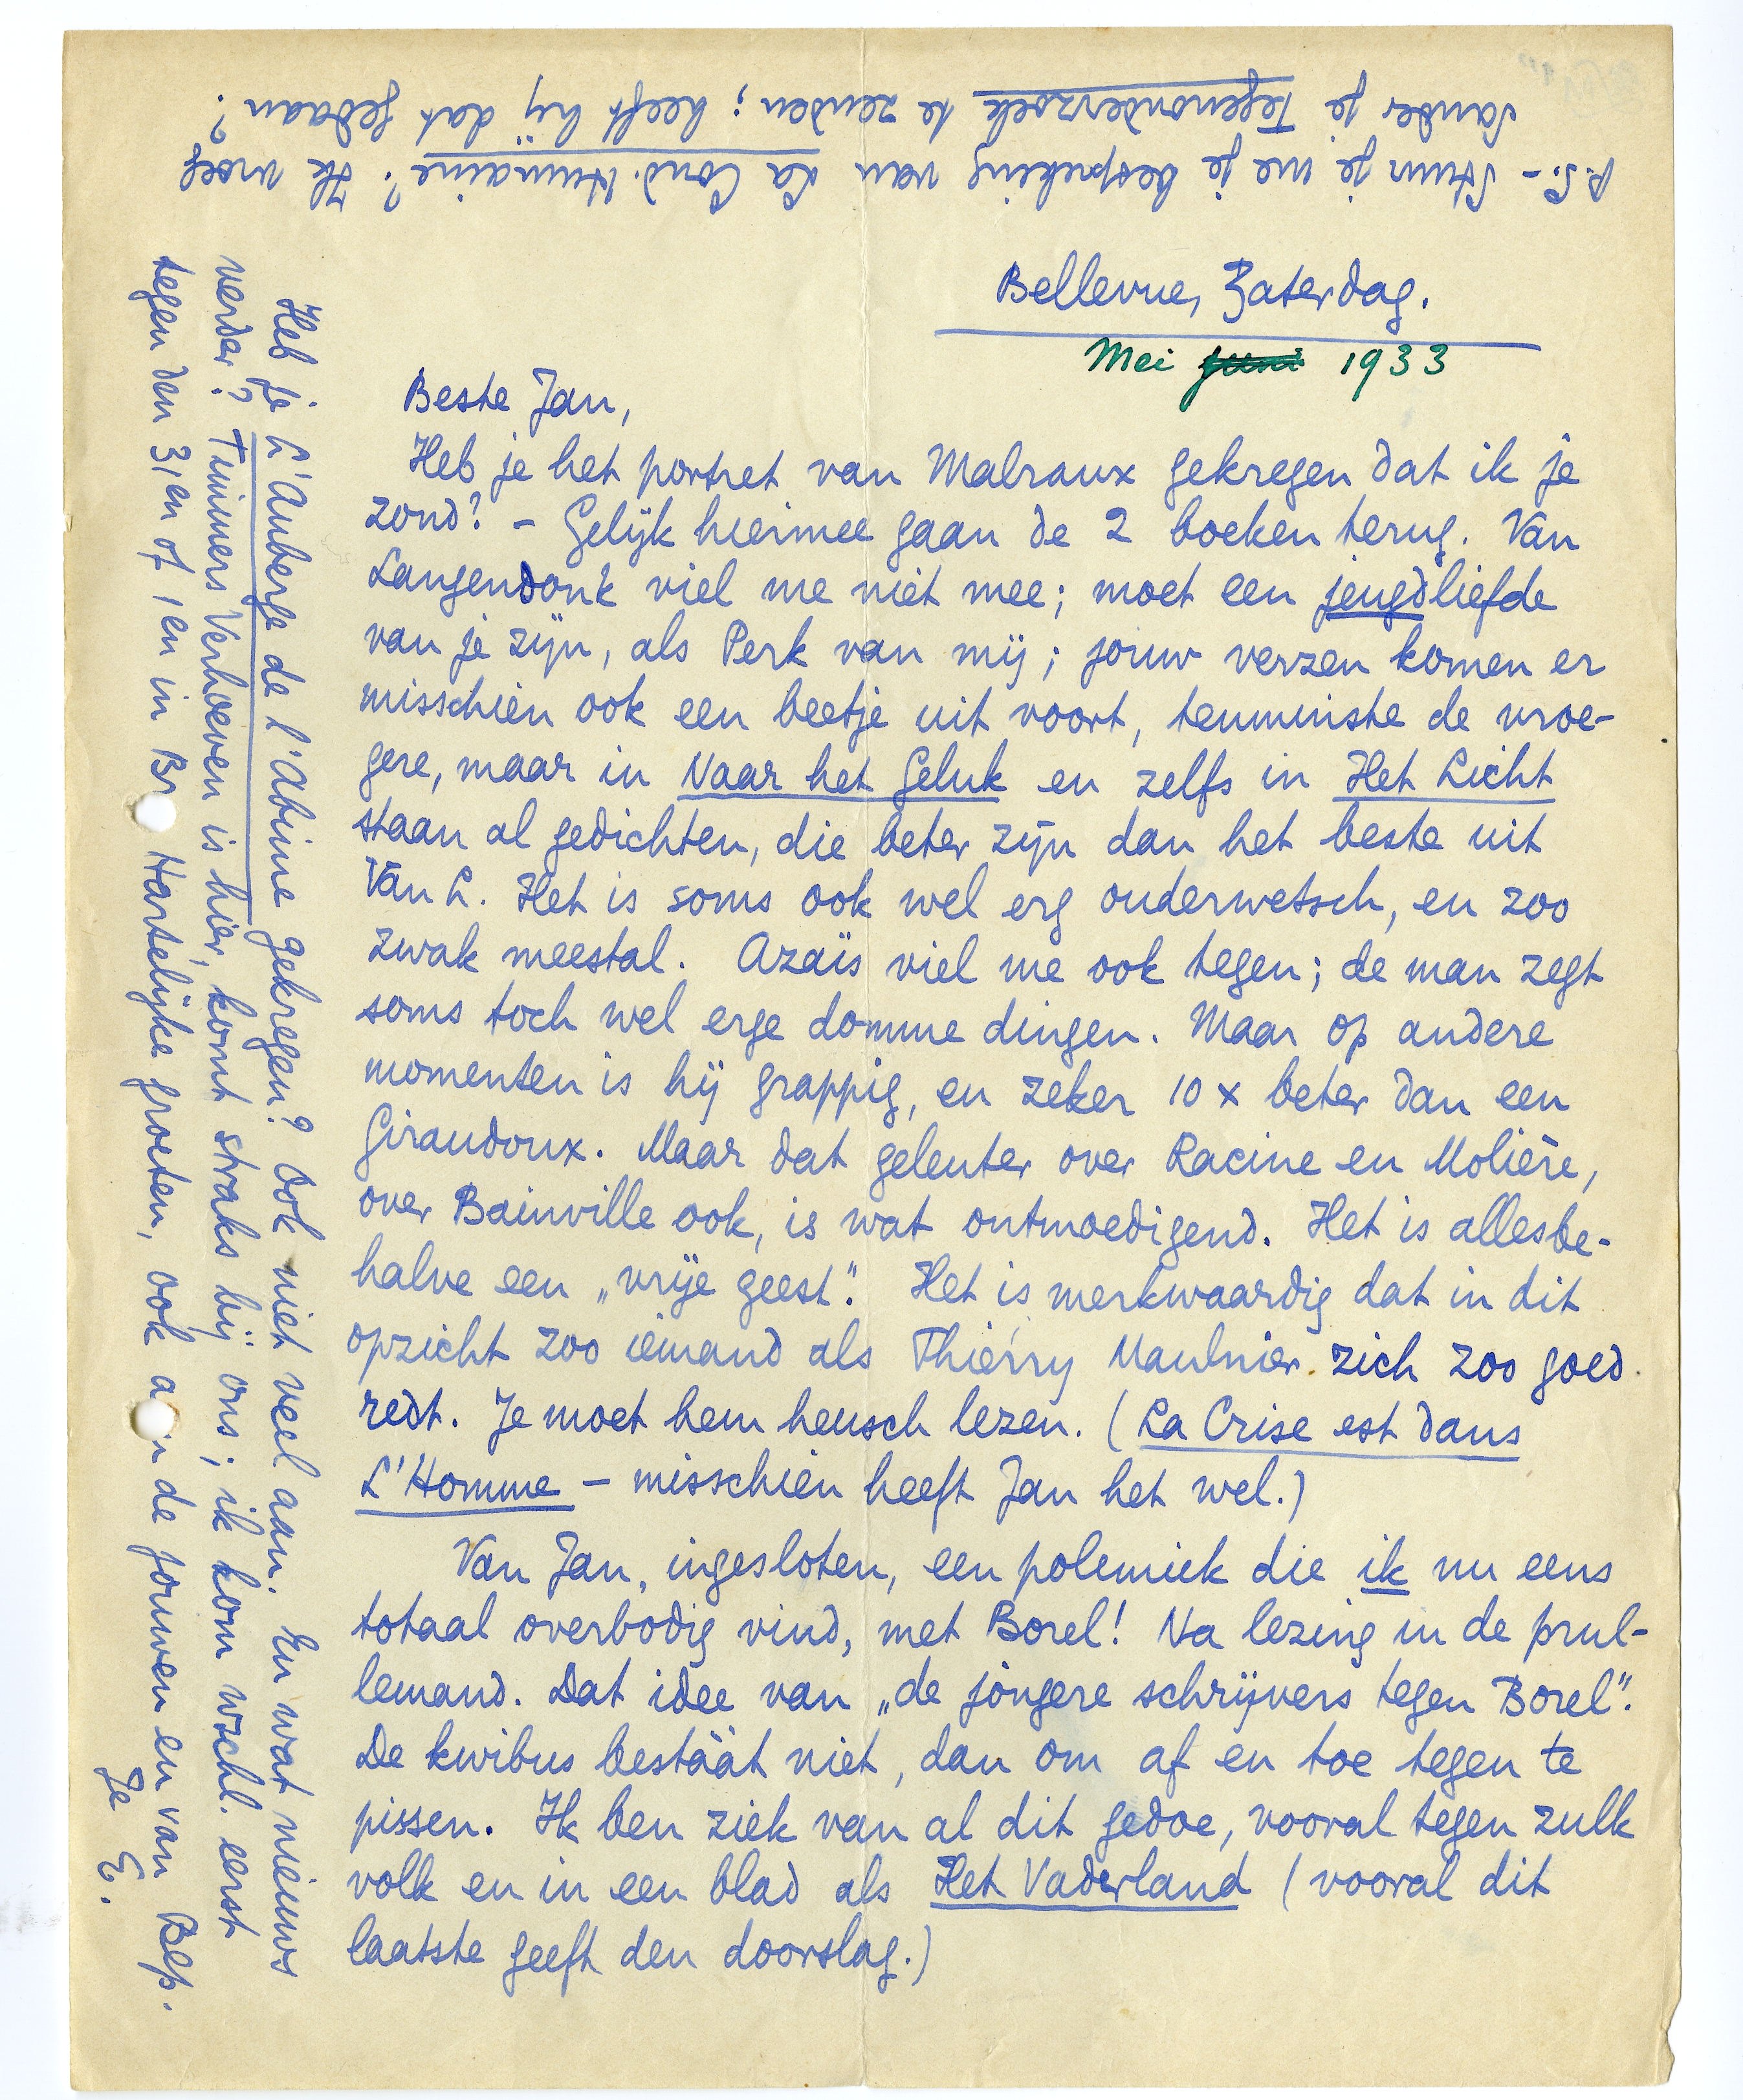 Bellevue, Zaterdag.
Mei juni 1933
Beste Jan,
Heb je het portret van Malraux gekregen dat ik je
zond? – Gelijk hiermee gaan de 2 boeken terug. Van
Langendonk viel me niet mee; moet een jeugdliefde
van je zijn, als Perk van mij; jouw verzen komen er
misschien ook een beetje uit voort, tenminste de vroe-
gere, maar in Naar het Geluk en zelfs in Het Licht
staan al gedichten, die beter zijn dan het beste uit
Van L. Het is soms ook wel erg ouderwetsch, en zoo
zwak meestal. Azaïs viel me ook tegen; de man zegt
soms toch wel erge domme dingen. Maar op andere
momenten is hij grappig, en zeker 10 x beter dan een
Giraudoux. Maar dat geleuter over Racine en Molière,
over Bainville ook, is wat ontmoedigend. Het is allesbe-
halve een „vrije geest". Het is merkwaardig dat in dit
opzicht zoo iemand als Thierry Maulnier zich zoo goed
redt. Je moet hem heusch lezen. (La Crise est dans
L'Homme – misschien heeft Jan het wel.)
Van Jan, ingesloten, een polemiek die ik nu eens
totaal overbodig vind, met Borel! Na lezing in de prul-
lemand. Dat idee van „de jongere schrijvers tegen Borel".
De kwibus bestáát niet, dan om af en toe tegen te
pissen. Ik ben ziek van al dit gedoe, vooral tegen zulk
volk en in een blad als Het Vaderland (vooral dit
laatste geeft den doorslag.)
Heb je L'Auberge de l'Abîme gekregen? Ook niet veel aan. En wat nieuws
verder? Tuinners Verhoeven is hier, komt straks bij ons; ik kom wschl. eerst
tegen den 31en of 1en in Br Hartelijke groeten, ook a n de jouwen en van Bep.
Je E.
P.S. – Stuur je me je bespreking van La Cond. Humaine? Ik vroeg
Sander je Tegenonderzoek te zenden; heeft hij dat gedaan?